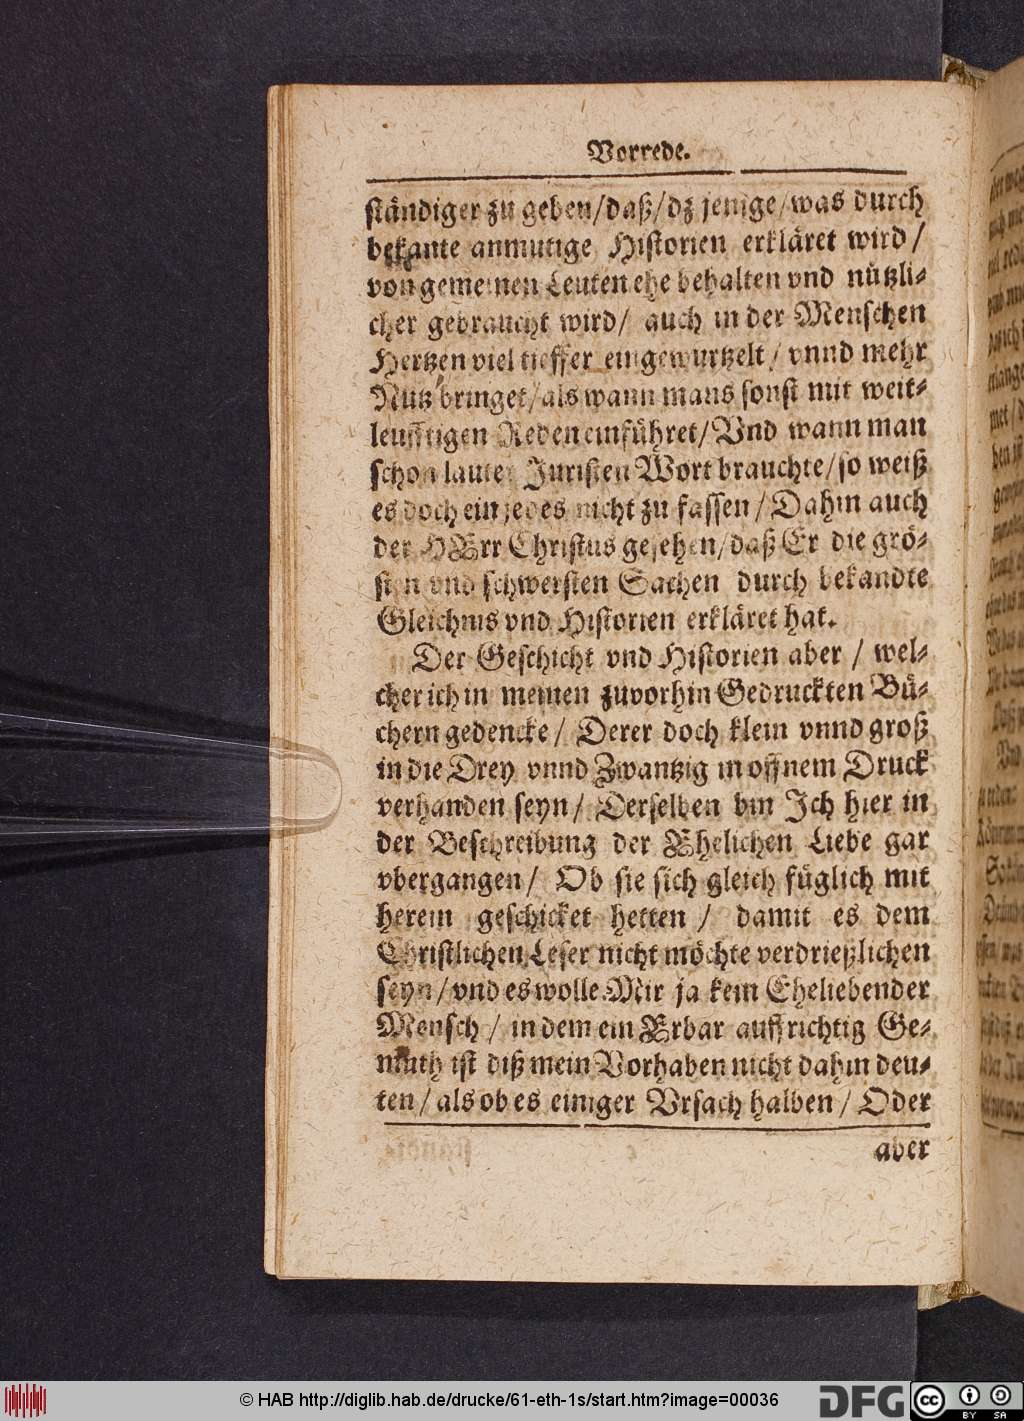 Vorrede.
ständiger zu geben/daß/dz jenige/was durch
bekante anmutige Historien erkläret wird/
von gemeinen Leuten ehe behalten vnd nützli-
cher gebraucht wird/ auch in der Menschen
Hertzen viel tieffer eingewurtzelt/ vnnd mehr
Nutz bringet/als wann mans sonst mit weit-
leufftigen Reden einführet/Vnd wann man
schon lauter Juristen Wort brauchte/so weiß
es doch ein jedes nicht zu fassen/Dahin auch
der HErr Christus gesehen/daß Er die grö-
sten vnd schwersten Sachen durch bekandte
Gleichnis vnd Historien erkläret hat.
Der Geschicht vnd Historien aber / wel-
cher ich in meinen zuvorhin Gedruckten Bü-
chern gedencke/ Derer doch klein vnnd groß
in die Drey vnnd Zwantzig in offnem Druck
verhanden seyn/ Derselben bin Ich hier in
der Beschreibung der Ehelichen Liebe gar
vbergangen/ Ob sie sich gleich füglich mit
herein geschicket hetten / damit es dem
Christlichen Leser nicht möchte verdrießlichen
seyn/vnd es wolle Mir ja kein Eheliebender
Mensch / in dem ein Erbar auffrichtig Ge-
muth ist diß mein Vorhaben nicht dahin deu-
ten/als ob es einiger Vrsach halben/ Oder
aber
© HAB http://diglib.hab.de/drucke/61-eth-1s/start.htm?image=00036
DFG
cc
BY SA